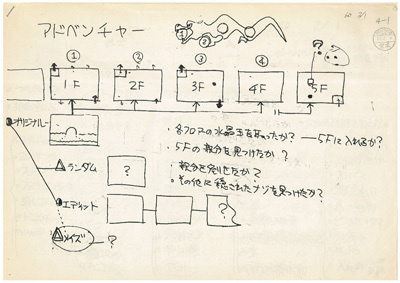 アドベンチャー
① ②
10 27
4-1
① ② ③ ④ ⑤
?
1F 2F 3F 4F 5F
オリジナル
・各フロアの水晶玉を取ったか? ― 5Fに入れるか?
・5Fの親分を見つけたか?
・親分を倒せたか?
・その他に隠されたナゾを見つけたか?
ランダム ?
エディット ?
メイズ ?